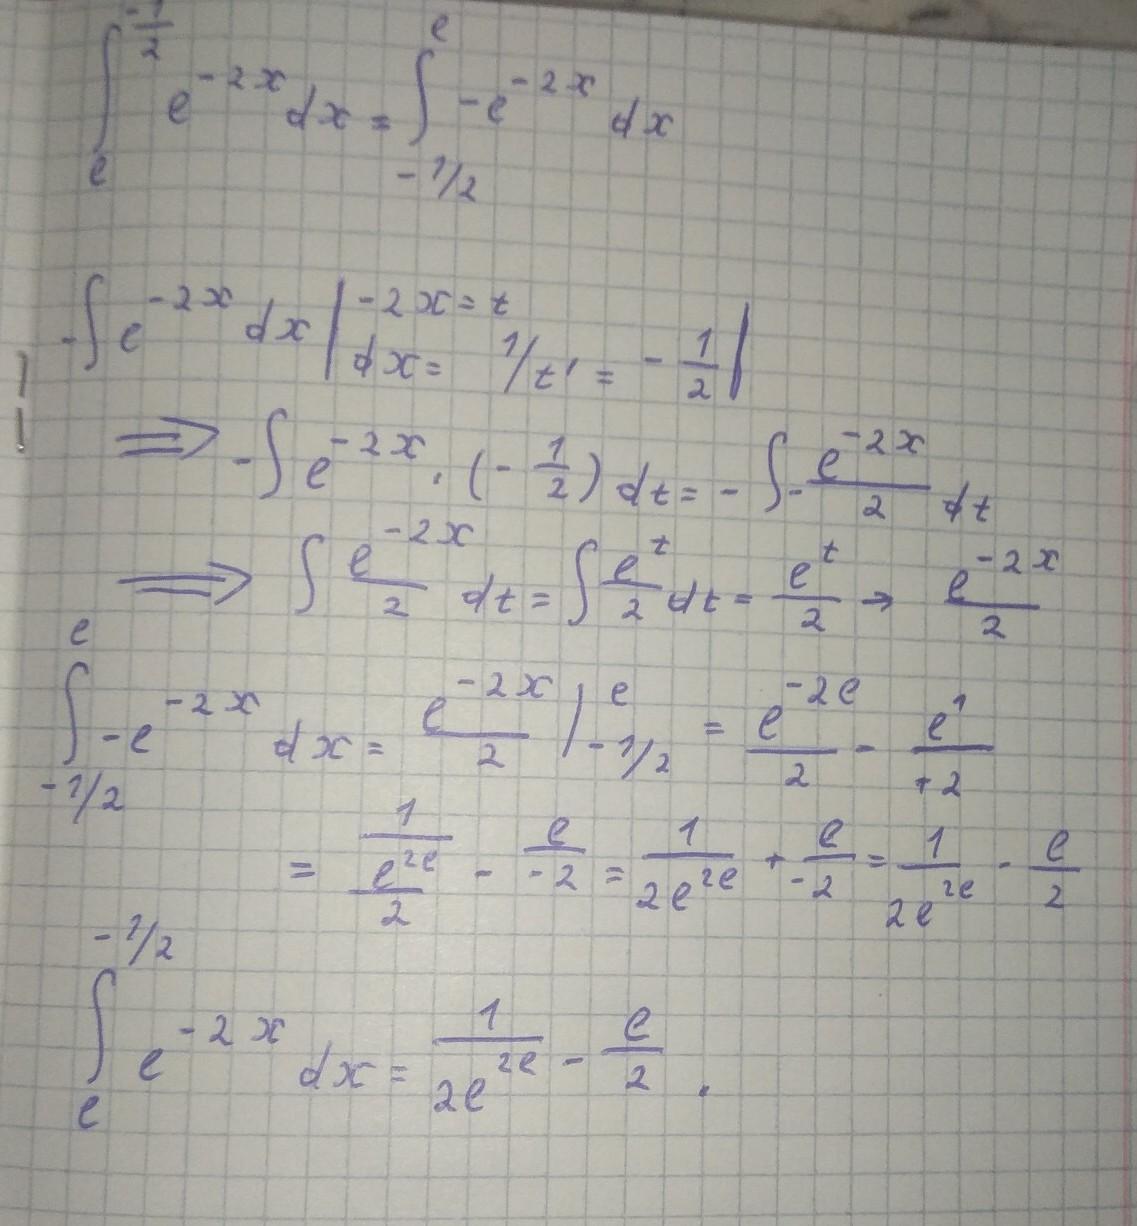 ∫_{e}^{-1/2} e^{-2x} dx = ∫_{-1/2}^{e} -e^{-2x} dx
-∫ e^{-2x} dx | -2x = t
dx = 1/t' = -1/2 |
⇒ -∫ e^{-2x} · (-1/2) dt = -∫ -e^{-2x}/2 dt
⇒ ∫ e^{-2x}/2 dt = ∫ e^{t}/2 dt = e^{t}/2 → e^{-2x}/2
∫_{-1/2}^{e} -e^{-2x} dx = e^{-2x}/2 |_{-1/2}^{e} = e^{-2e}/2 - e^{1}/+2
= (1/e^{2e})/2 - e/-2 = 1/2e^{2e} + e/-2 = 1/2e^{2e} - e/2
∫_{e}^{-1/2} e^{-2x} dx = 1/2e^{2e} - e/2 .